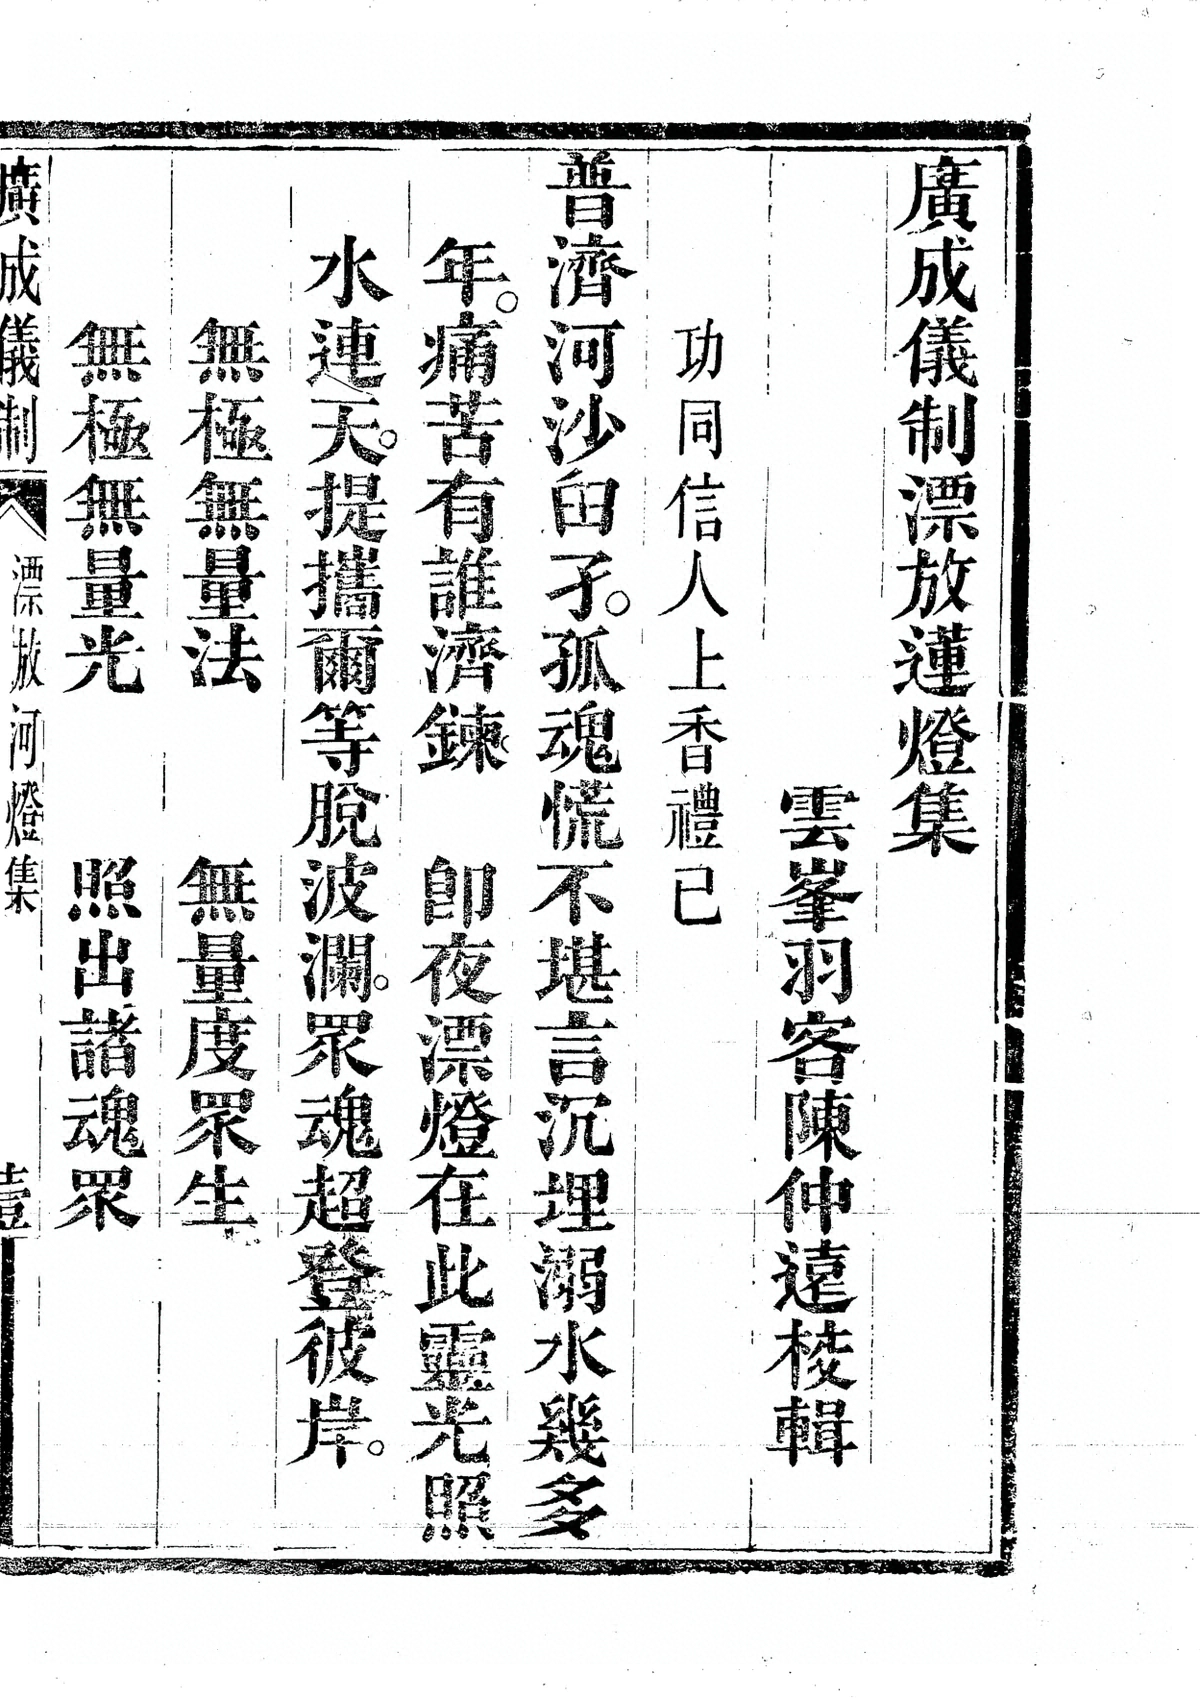 廣成儀制漂放蓮燈集
雲峯羽客陳仲遠校輯
功同信人上香禮已
普濟河沙甶孑。孤魂慌不堪言沉埋溺水幾多
年。痛苦有誰濟鍊。 卽夜漂燈在此靈光照
水連天。提攜爾等脫波瀾。眾魂超登彼岸。
無極無量法 無量度眾生
無極無量光 照出諸魂眾
廣成儀制 漂放河燈集 壹